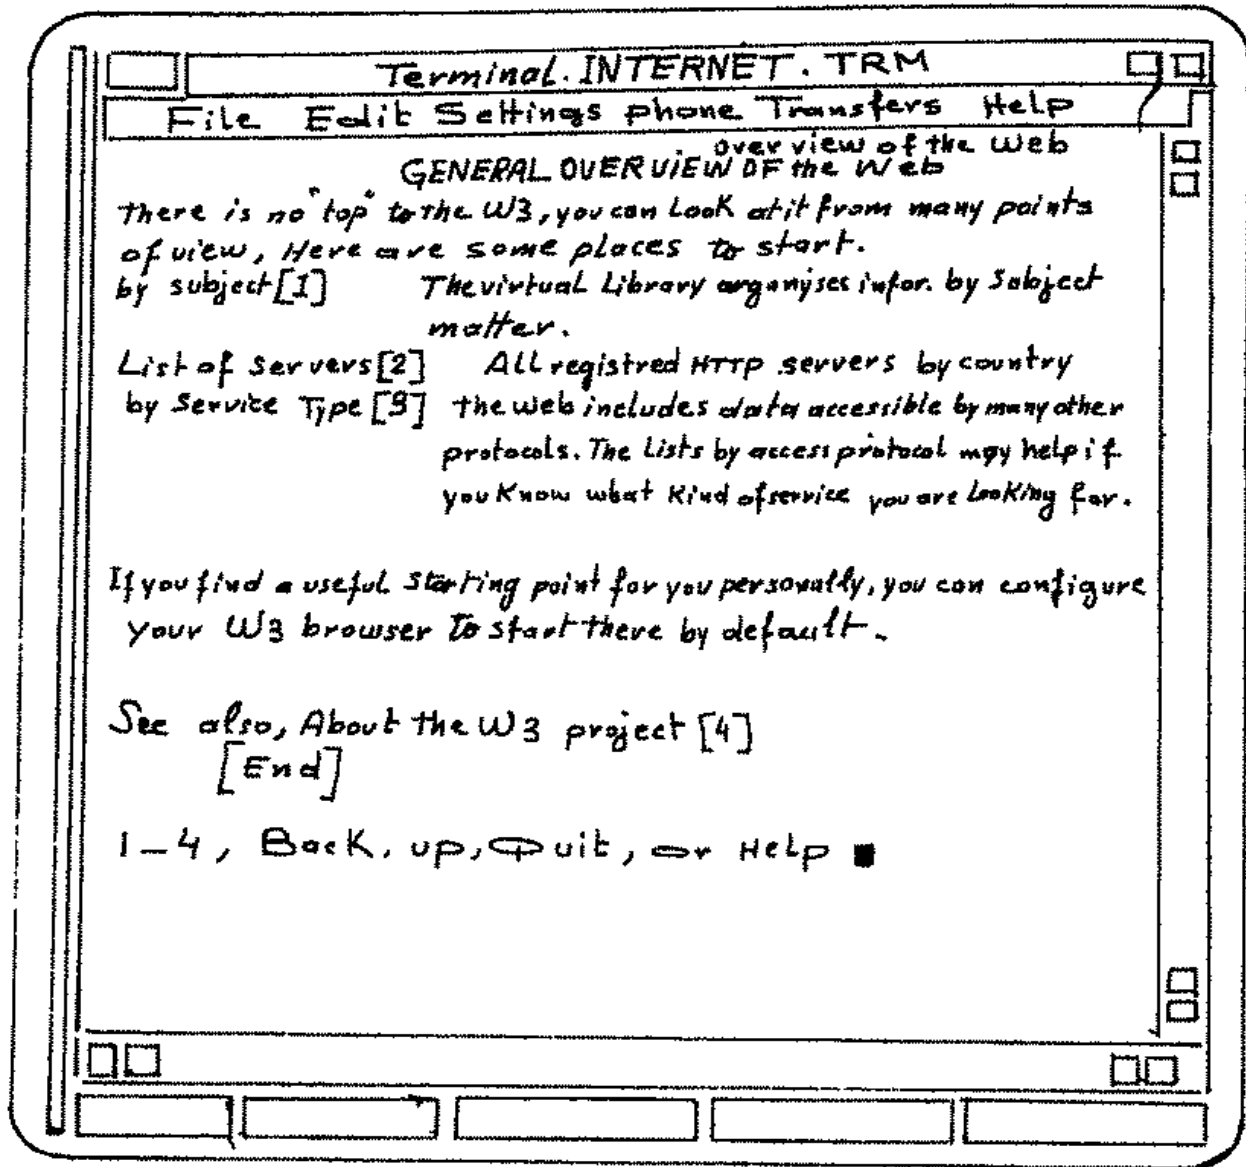 Terminal. INTERNET. TRM
File Edit Settings phone Transfers Help
over view of the Web
GENERAL OVERVIEW OF the Web
there is no "top" to the W3, you can Look at it from many points
of view, Here are some places to start.
by subject [1] The virtual Library arganyses infor. by Sabject
matter.
List of Servers [2] All registred HTTP servers by country
by Service Type [9] the web includes data accessible by many other
protocals. The Lists by access protocal may help if
you Know what Kind of service you are Looking for.
If you find a useful starting point for you personally, you can configure
your W3 browser To start there by default.
See also, About the W3 project [4]
[End]
1-4, Back. up, Quit, or Help